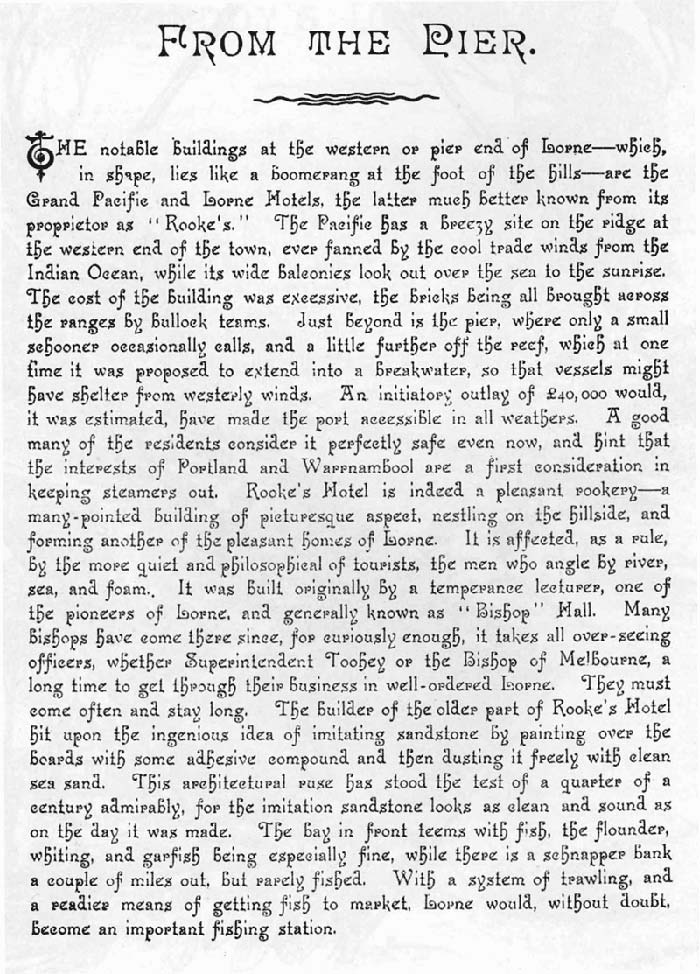 FROM THE PIER.
THE notable buildings at the western or pier end of Lorne—which,
in shape, lies like a boomerang at the foot of the hills—are the
Grand Pacific and Lorne Hotels, the latter much better known from its
proprietor as "Rooke's." The Pacific has a breezy site on the ridge at
the western end of the town, ever fanned by the cool trade winds from the
Indian Ocean, while its wide balconies look out over the sea to the sunrise.
The cost of the building was excessive, the bricks being all brought across
the ranges by bullock teams. Just beyond is the pier, where only a small
schooner occasionally calls, and a little further off the reef, which at one
time it was proposed to extend into a breakwater, so that vessels might
have shelter from westerly winds. An initiatory outlay of £40,000 would,
it was estimated, have made the port accessible in all weathers. A good
many of the residents consider it perfectly safe even now, and hint that
the interests of Portland and Warrnambool are a first consideration in
keeping steamers out. Rooke's Hotel is indeed a pleasant rookery—a
many-pointed building of picturesque aspect, nestling on the hillside, and
forming another of the pleasant homes of Lorne. It is affected, as a rule,
by the more quiet and philosophical of tourists, the men who angle by river,
sea, and foam. It was built originally by a temperance lecturer, one of
the pioneers of Lorne, and generally known as "Bishop" Hall. Many
bishops have come there since, for curiously enough, it takes all over-seeing
officers, whether Superintendent Toohey or the Bishop of Melbourne, a
long time to get through their business in well-ordered Lorne. They must
come often and stay long. The builder of the older part of Rooke's Hotel
hit upon the ingenious idea of imitating sandstone by painting over the
boards with some adhesive compound and then dusting it freely with clean
sea sand. This architectural ruse has stood the test of a quarter of a
century admirably, for the imitation sandstone looks as clean and sound as
on the day it was made. The bay in front teems with fish, the flounder,
whiting, and garfish being especially fine, while there is a schnapper bank
a couple of miles out, but rarely fished. With a system of trawling, and
a readier means of getting fish to market, Lorne would, without doubt,
become an important fishing station.